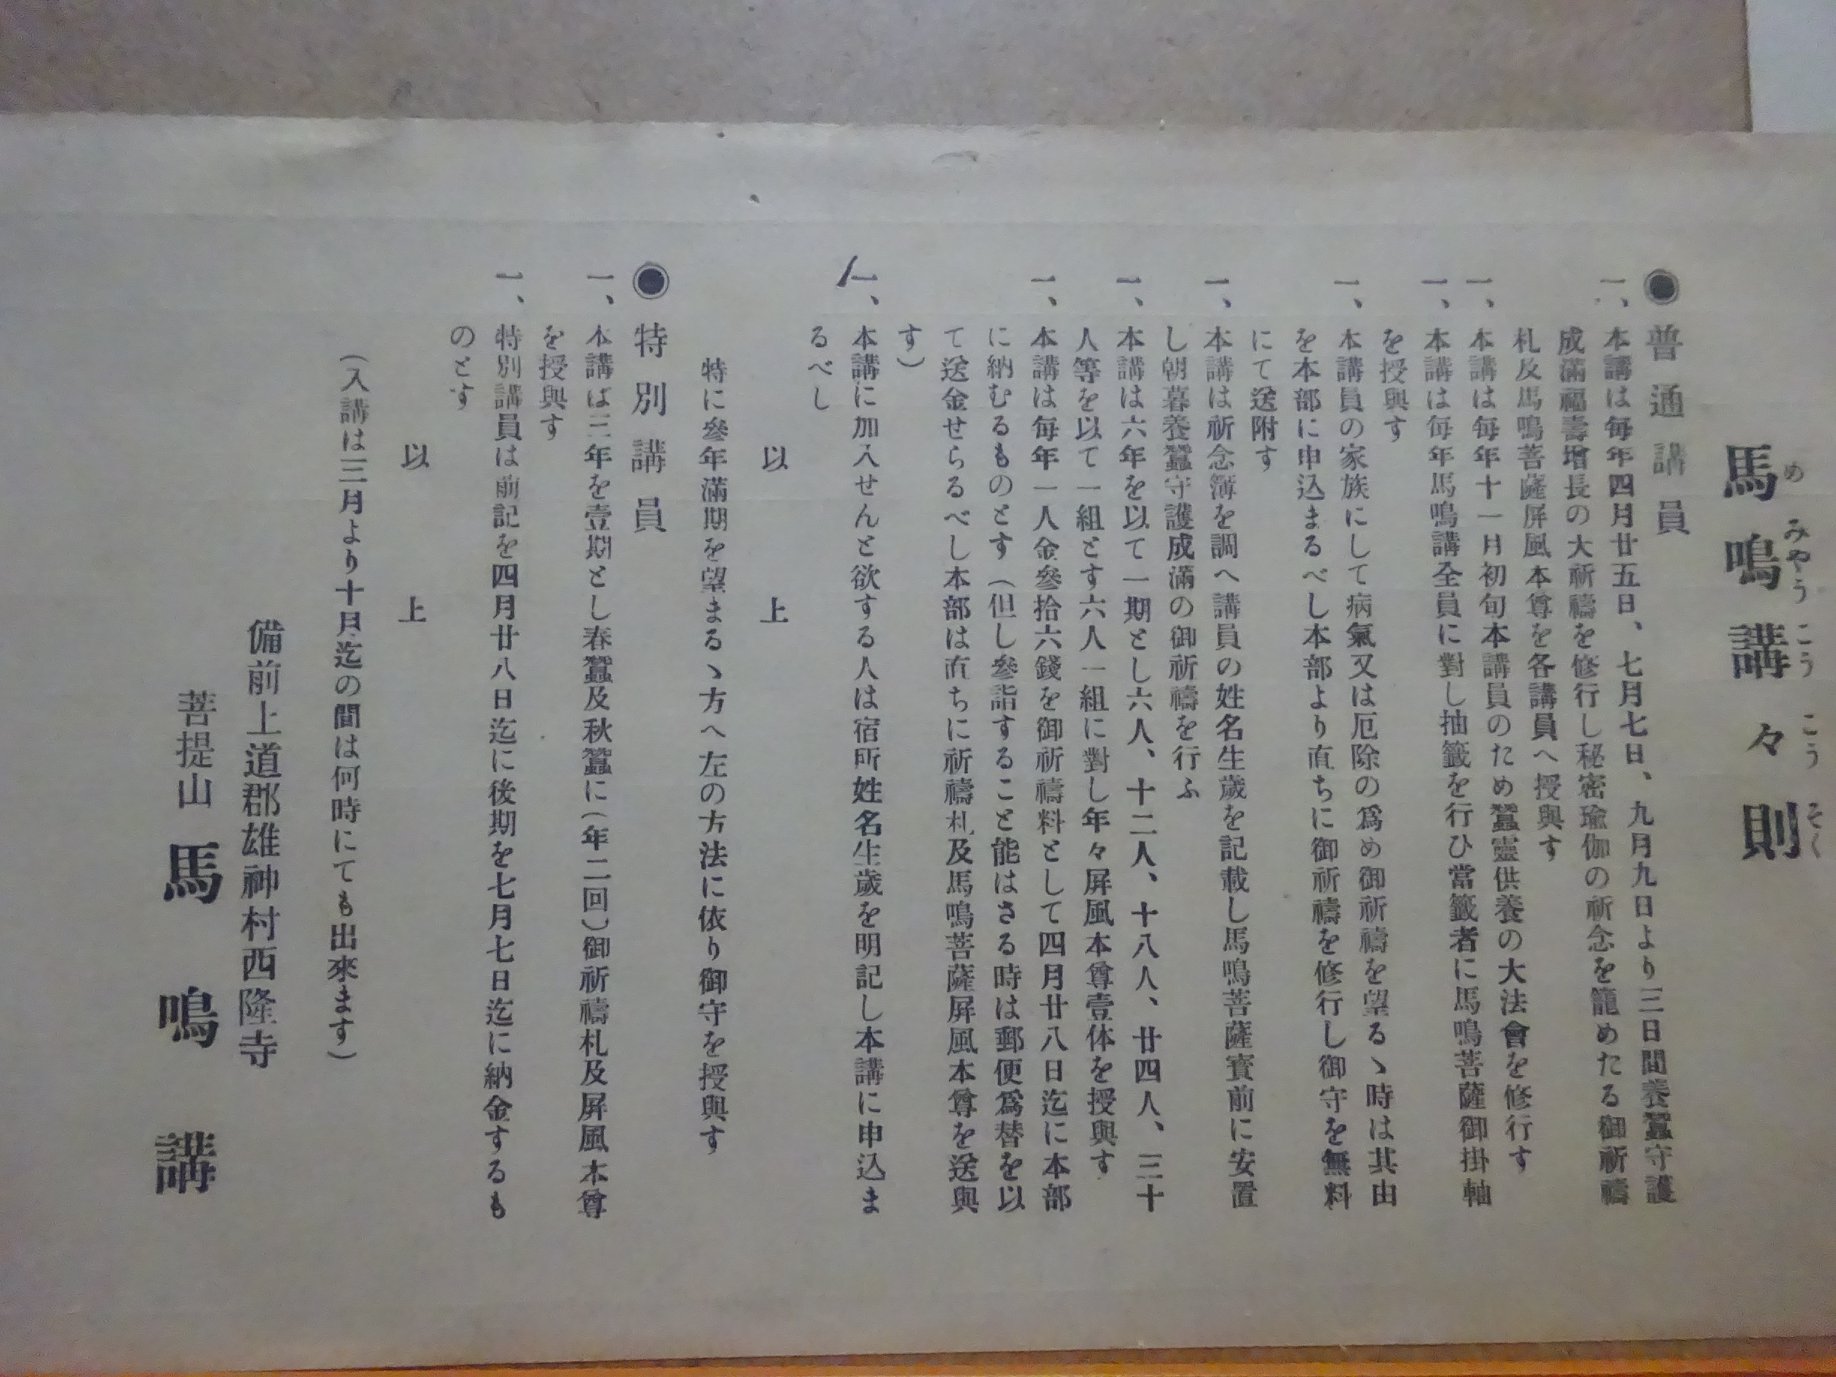 馬鳴講々則
めみやうこうこうそく
◉普通講員
一、本講は毎年四月廿五日、七月七日、九月九日より三日間養蠶守護
成滿福壽增長の大祈禱を修行し秘密瑜伽の祈念を籠めたる御祈禱
札及馬鳴菩薩屏風本尊を各講員へ授與す
一、本講は毎年十一月初旬本講員のため蠶靈供養の大法會を修行す
一、本講は毎年馬鳴講全員に對し抽籤を行ひ當籤者に馬鳴菩薩御掛軸
を授與す
一、本講員の家族にして病氣又は厄除の爲め御祈禱を望るゝ時は其由
を本部に申込まるべし本部より直ちに御祈禱を修行し御守を無料
にて送附す
一、本講は祈念簿を調へ講員の姓名生歲を記載し馬鳴菩薩寶前に安置
し朝暮養蠶守護成滿の御祈禱を行ふ
一、本講は六年を以て一期とし六人、十二人、十八人、廿四人、三十
人等を以て一組とす六人一組に對し年々屏風本尊壹体を授與す
一、本講は毎年一人金參拾六錢を御祈禱料として四月廿八日迄に本部
に納むるものとす（但し參詣すること能はさる時は郵便爲替を以
て送金せらるべし本部は直ちに祈禱札及馬鳴菩薩屏風本尊を送與
す）
一、本講に加入せんと欲する人は宿所姓名生歲を明記し本講に申込ま
るべし
以上
特に參年滿期を望まるゝ方へ左の方法に依り御守を授與す
◉特別講員
一、本講は三年を壹期とし春蠶及秋蠶に（年二回）御祈禱札及屏風本尊
を授與す
一、特別講員は前記を四月廿八日迄に後期を七月七日迄に納金するも
のとす
以上
（入講は三月より十月迄の間は何時にても出來ます）
備前上道郡雄神村西隆寺
菩提山 馬鳴講